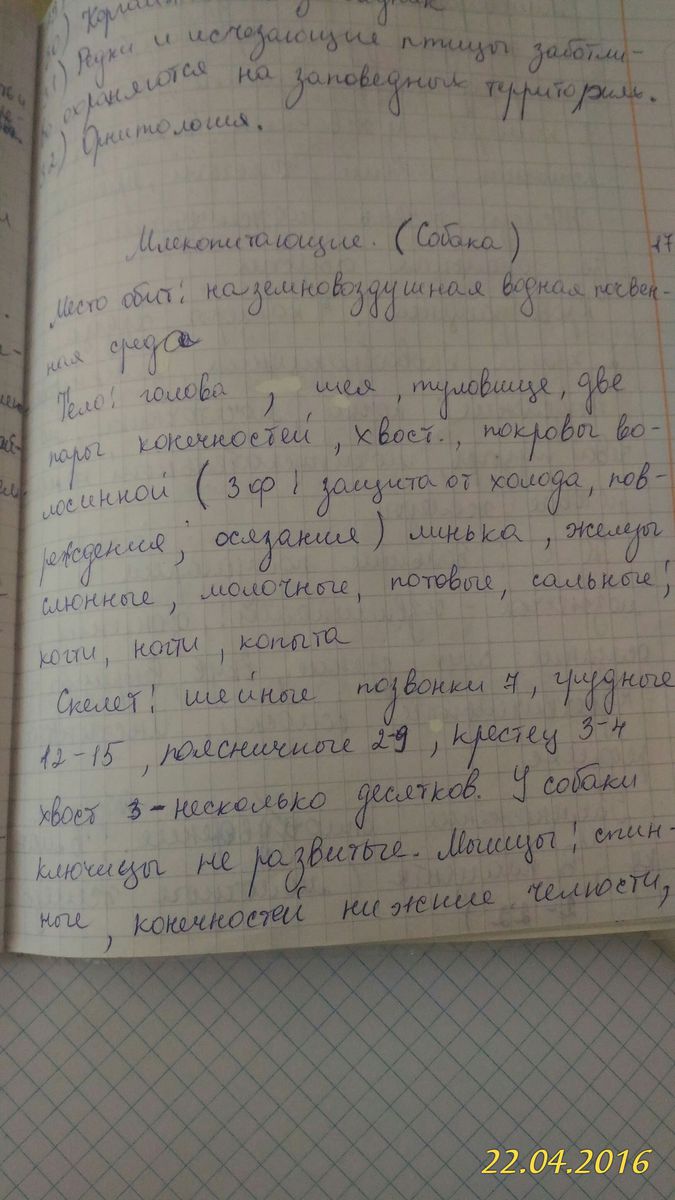 1) Редки и исчезающие птицы заботли-
охраняются на заповедных территориь.
2) Орнитология.
Млекопитающие. (Собака)
17
Место обит: наземновоздушная водная почвен-
ная среда
Тело: голова , шея , туловище, две
пары конечностей , хвост., покровы во-
лосинной ( 3 ф : защита от холода, пов-
реждения ; осязания ) линька , железы
слюнные , молочные, потовые, сальные ;
когти, ногти , копыта
Скелет: шейные позвонки 7 , грудные
12-15 , поясничные 2-9 , крестец 3-4
хвост 3-несколько десятков. У собаки
ключицы не развитые. Мышцы: спин-
ные , конечностей нижние челюсти,
22.04.2016